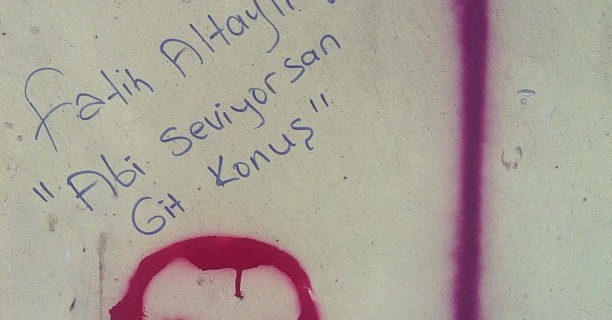 Fatih Altaylı
"Abi Seviyorsan
Git Konuş"